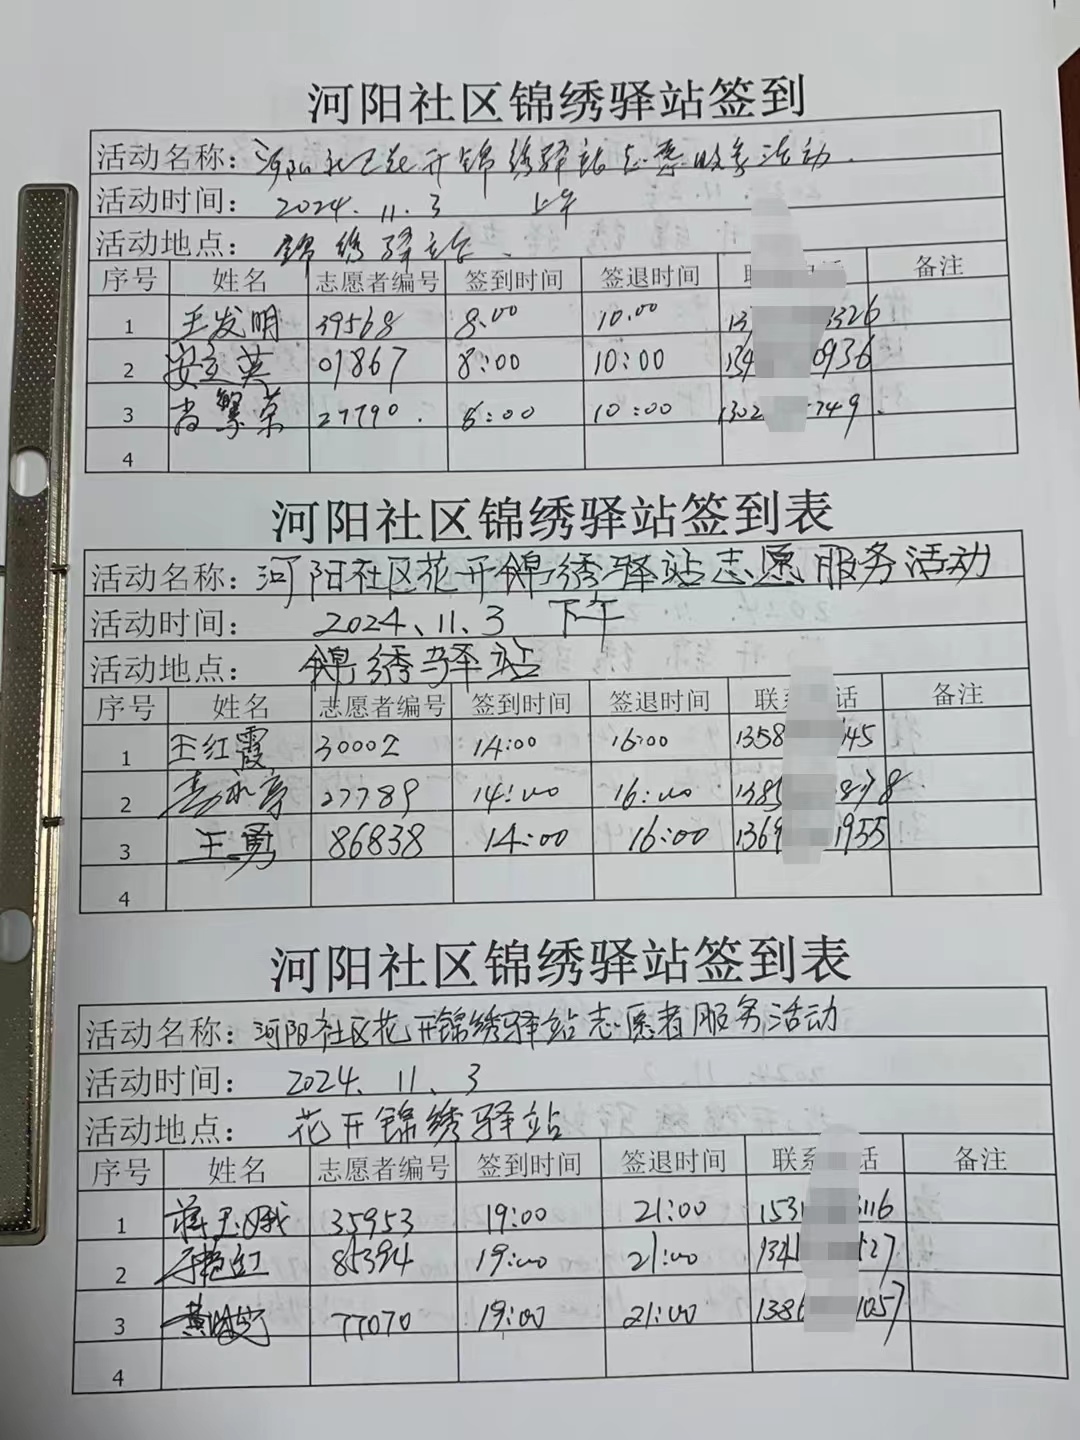 河阳社区锦绣驿站签到
活动名称：河阳社区花开锦绣驿站志愿服务活动.
活动时间： 2024.11.3 上午
活动地点： 锦绣驿站.
序号 姓名 志愿者编号 签到时间 签退时间 联 话 备注
1 王发明 39568 8.00 10.00 13 3326
2 安立英 01867 8:00 10:00 134 0936
3 肖繁荣 27790. 8:00 10:00 1302 749.
4
河阳社区锦绣驿站签到表
活动名称：河阳社区花开锦绣驿站志愿服务活动
活动时间： 2024、11、3 下午
活动地点： 锦绣驿站
序号 姓名 志愿者编号 签到时间 签退时间 联 话 备注
1 王红霞 30002 14:00 16:00 1358 145
2 27789 14:00 16:00 1385 8878
3 王勇 86838 14:00 16:00 1369 1955
4
河阳社区锦绣驿站签到表
活动名称：河阳社区花开锦绣驿站志愿者服务活动
活动时间： 2024、11、3
活动地点： 花开锦绣驿站
序号 姓名 志愿者编号 签到时间 签退时间 联系 话 备注
1 蒋玉娥 35953 19:00 21:00 1531 3116
2 85394 19:00 21:00 1341 527
3 77070 19:00 21:00 1386 1057
4